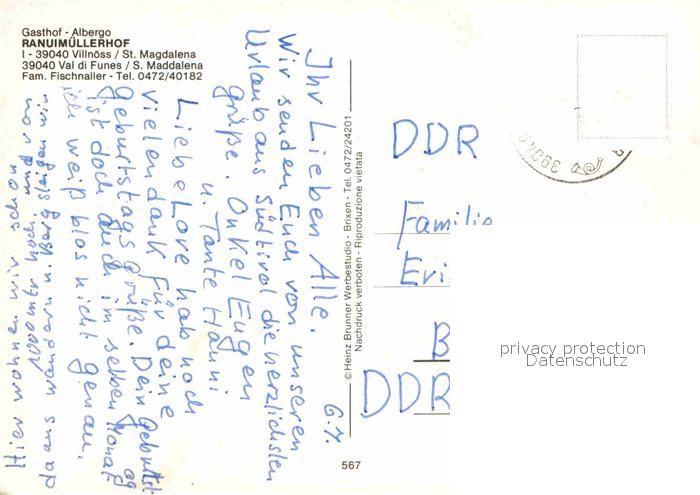 Gasthof - Albergo
RANUIMÜLLERHOF
I - 39040 Villnöss / St. Magdalena
39040 Val di Funes / S. Maddalena
Fam. Fischnaller - Tel. 0472/40182
6.7.
Ihr Lieben Alle.
Wir senden Euch von unseren
Urlaub aus Südtirol die herzlichsten
Grüße. Onkel Eugen
u. Tante Hanni
Liebe Lore hab noch
vielen dank für deine
Geburtstagsgrüße. Dein Geburtst
ag
ist doch auch im selben Monat
ich weiß blos nicht genau.
Hier wohnen wir schon
1000 mtr hoch, und von
da aus wandern u. Berg steigen wir
© Heinz Brunner Werbestudio - Brixen - Tel. 0472/24201
Nachdruck verboten - Riproduzione vietata
567
DDR
Familie
Eri
B
DDR
39040
privacy protection
Datenschutz